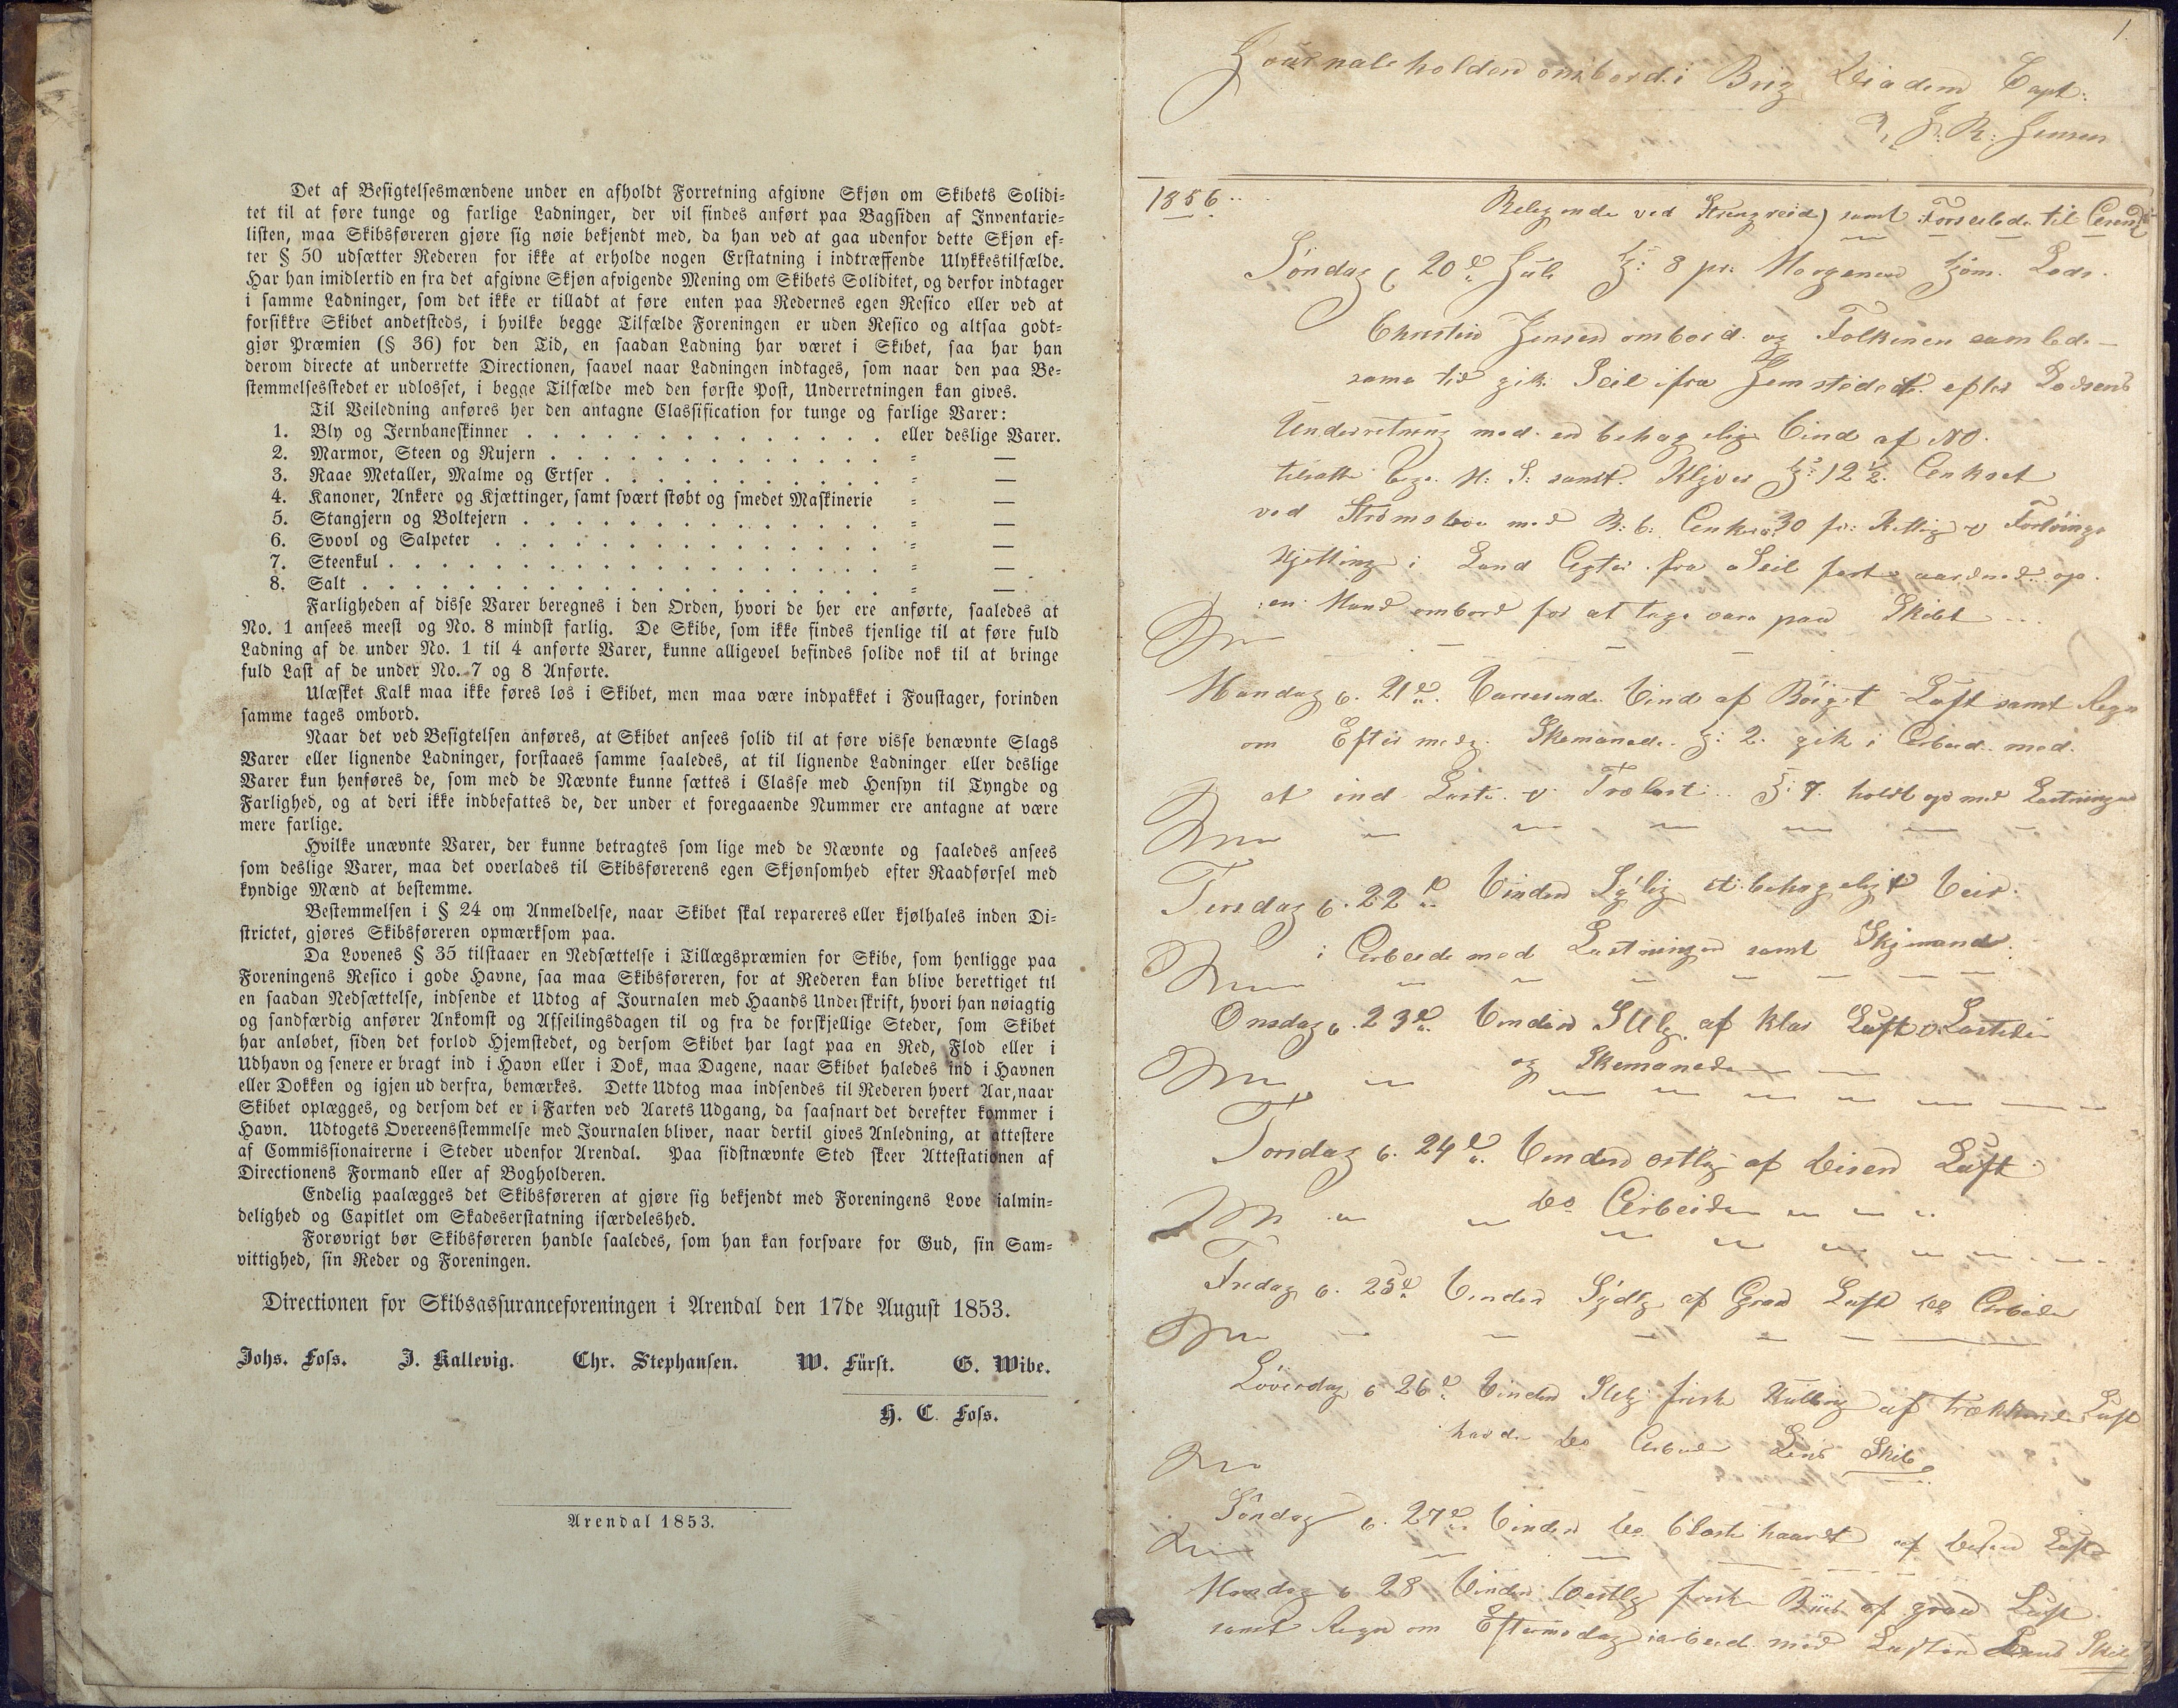 Det af Besigtelsesmændene under en afholdt Forretning afgivne Skjøn om Skibets Solidi-
tet til at føre tunge og farlige Ladninger, der vil findes anført paa Bagsiden af Inventarie-
listen, maa Skibsføreren gjøre sig nøie bekjendt med, da han ved at gaa udenfor dette Skjøn ef-
ter § 50 udsætter Rederen for ikke at erholde nogen Erstatning i indtræffende Ulykkestilfælde.
Har han imidlertid en fra det afgivne Skjøn afvigende Mening om Skibets Soliditet, og derfor indtager
i samme Ladninger, som det ikke er tilladt at føre enten paa Redernes egen Resico eller ved at
forsikkre Skibet andetsteds, i hvilke begge Tilfælde Foreningen er uden Resico og altsaa godt-
gjør Præmien (§ 36) for den Tid, en saadan Ladning har været i Skibet, saa har han
derom directe at underrette Directionen, saavel naar Ladningen indtages, som naar den paa Be-
stemmelsesstedet er udlosset, i begge Tilfælde med den første Post, Underretningen kan gives.
Til Veiledning anføres her den antagne Classification for tunge og farlige Varer:
1. Bly og Jernbaneskinner . . . . . . . . . . . . . eller deslige Varer.
2. Marmor, Steen og Rujern . . . . . . . . . . . . = —
3. Raae Metaller, Malme og Ertser . . . . . . . . . . = —
4. Kanoner, Ankere og Kjættinger, samt svært støbt og smedet Maskinerie = —
5. Stangjern og Boltejern . . . . . . . . . . . . . = —
6. Svovl og Salpeter . . . . . . . . . . . . . . = —
7. Steenkul . . . . . . . . . . . . . . . . . = —
8. Salt . . . . . . . . . . . . . . . . . . = —
Farligheden af disse Varer beregnes i den Orden, hvori de her ere anførte, saaledes at
No. 1 ansees meest og No. 8 mindst farlig. De Skibe, som ikke findes tjenlige til at føre fuld
Ladning af de under No. 1 til 4 anførte Varer, kunne alligevel befindes solide nok til at bringe
fuld Last af de under No. 7 og 8 Anførte.
Ulæsket Kalk maa ikke føres løs i Skibet, men maa være indpakket i Foustager, forinden
samme tages ombord.
Naar det ved Besigtelsen anføres, at Skibet ansees solid til at føre visse benævnte Slags
Varer eller lignende Ladninger, forstaaes samme saaledes, at til lignende Ladninger eller deslige
Varer kun henføres de, som med de Nævnte kunne sættes i Classe med Hensyn til Tyngde og
Farlighed, og at deri ikke indbefattes de, der under et foregaaende Nummer ere antagne at være
mere farlige.
Hvilke unævnte Varer, der kunne betragtes som lige med de Nævnte og saaledes ansees
som deslige Varer, maa det overlades til Skibsførerens egen Skjønsomhed efter Raadførsel med
kyndige Mænd at bestemme.
Bestemmelsen i § 24 om Anmeldelse, naar Skibet skal repareres eller kjølhales inden Di-
strictet, gjøres Skibsføreren opmærksom paa.
Da Lovenes § 35 tilstaaer en Nedsættelse i Tillægspræmien for Skibe, som henligge paa
Foreningens Resico i gode Havne, saa maa Skibsføreren, for at Rederen kan blive berettiget til
en saadan Nedsættelse, indsende et Udtog af Journalen med Haands Underskrift, hvori han nøiagtig
og sandfærdig anfører Ankomst og Afseilingsdagen til og fra de forskjellige Steder, som Skibet
har anløbet, siden det forlod Hjemstedet, og dersom Skibet har lagt paa en Red, Flod eller i
Udhavn og senere er bragt ind i Havn eller i Dok, maa Dagene, naar Skibet haledes ind i Havnen
eller Dokken og igjen ud derfra, bemærkes. Dette Udtog maa indsendes til Rederen hvert Aar, naar
Skibet oplægges, og dersom det er i Farten ved Aarets Udgang, da saasnart det derefter kommer i
Havn. Udtogets Overeensstemmelse med Journalen bliver, naar dertil gives Anledning, at attestere
af Commissionairerne i Steder udenfor Arendal. Paa sidstnævnte Sted skeer Attestationen af
Directionens Formand eller af Bogholderen.
Endelig paalægges det Skibsføreren at gjøre sig bekjendt med Foreningens Love ialmin-
delighed og Capitlet om Skadeserstatning isærdeleshed.
Forøvrigt bør Skibsføreren handle saaledes, som han kan forsvare for Gud, sin Sam-
vittighed, sin Reder og Foreningen.
Directionen for Skibsassuranceforeningen i Arendal den 17de August 1853.
Johs. Foss. J. Kallevig. Chr. Stephansen. W. Fürst. G. Wibe.
H. C. Foss.
Arendal 1853.
1
Journale holden ombord i Brig Diadem Capt:
J: R: Jensen
1856
Belegende ved Strengreid samt Forseilede til
Søndag d 20de Juli Kl: 8 pr: Morgenen kjom Lods
Christen Jensen ombord og Folkenen samlede
sama tid gik Seil ifra Jemstedet efter Lodsens
Underretning med en behagelig Vind af NO
tilsatte S: samt Klyver Kl: 12½ Ankret
ved Strømsboe med B: b: Anker 30 fv: Kjetting
Kjetting i Land Agter fra Seil fast
en Mand ombord for at tage vara paa Skibet
Mandag d. 21de Vind af Bøiget Luft samt Regn
om Eftermedg. Skemanede Kl: 2 gik i Arbeid med
at ind Laste Trælast Kl: 7 holdt op med Lastningen
Tirsdag d. 22de Vinden Sylig et behageligt Veir
i Arbeide med Lastningen samt Skjmand
Onsdag d. 23de Vinden af klar Luft Lastede
og Skemanede
Torsdag d. 24de Vinden ostlig af Disen Luft
do Arbeider
Fredag d. 25de Vinden Sydlg af Graa Luft do Arbeide
Løverdag d 26de Vinden frisk Kulling af trækkende Luft
havde do Arbeide Lens Skib
Søndag d. 27de Vinden do blæste haardt af Disen Luft
Mandag d 28 Vinden Vestlg frisk af graa Luft
samt Regn om Eftermedag i arbeid med Lasten Lens Skib